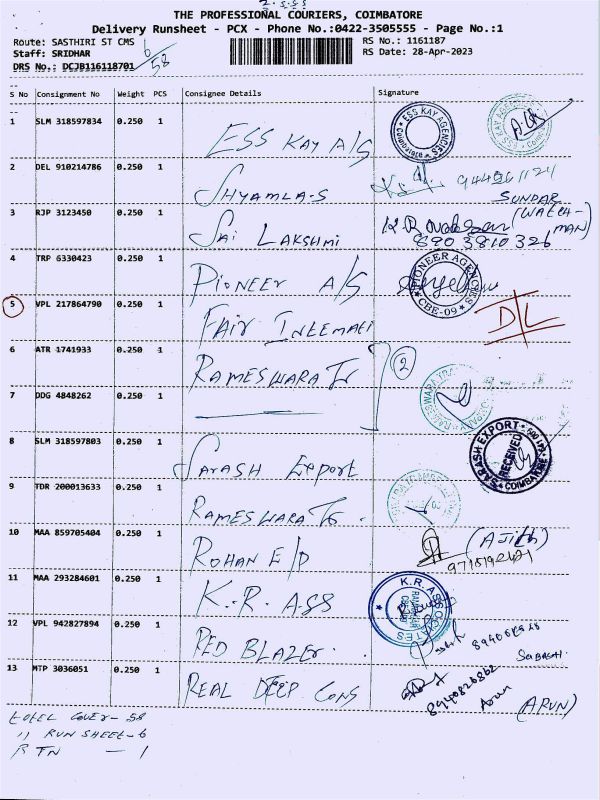 THE PROFESSIONAL COURIERS, COIMBATORE
Delivery Runsheet - PCX - Phone No.:0422-3505555 - Page No.:1
Route: SASTHIRI ST CMS
RS No.: 1161187
Staff: SRIDHAR
RS Date: 28-Apr-2023
DRS No.: DCJB116118701
6/58
S No Consignment No Weight PCS Consignee Details Signature
1 SLM 318597834 0.250 1 ESS KAY A/S ESS KAY AGENCIES
2 DEL 910214786 0.250 1 SHYAMLA-S
SUNDAR
(WATCH-MAN)
3 RJP 3123450 0.250 1 SAI LAKSHMI
8903810326
4 TRP 6330423 0.250 1 PIONEER A/S PIONEER AGENCIES CBE-09
5 VPL 217864790 0.250 1 FAIR INTEMATI D/L
6 ATR 1741933 0.250 1 RAMESWARA Tr 2
7 DDG 4848262 0.250 1
8 SLM 318597803 0.250 1 SARASH Export SARASH EXPORT RECEIVED COIMBATORE
9 TDR 200013633 0.250 1 RAMESWARA Tr.
10 MAA 859705404 0.250 1 ROHAN E/D (AJith)
11 MAA 293284601 0.250 1 K.R. ASS K.R. ASSOCIATES
12 VPL 942827894 0.250 1 RED BLAZER.
13 MTP 3036051 0.250 1 REAL DEEP CONS
8940826862
Arun
(ARUN)
Totel COVER - 58
11 RUN SHEET - 6
RTN - 1